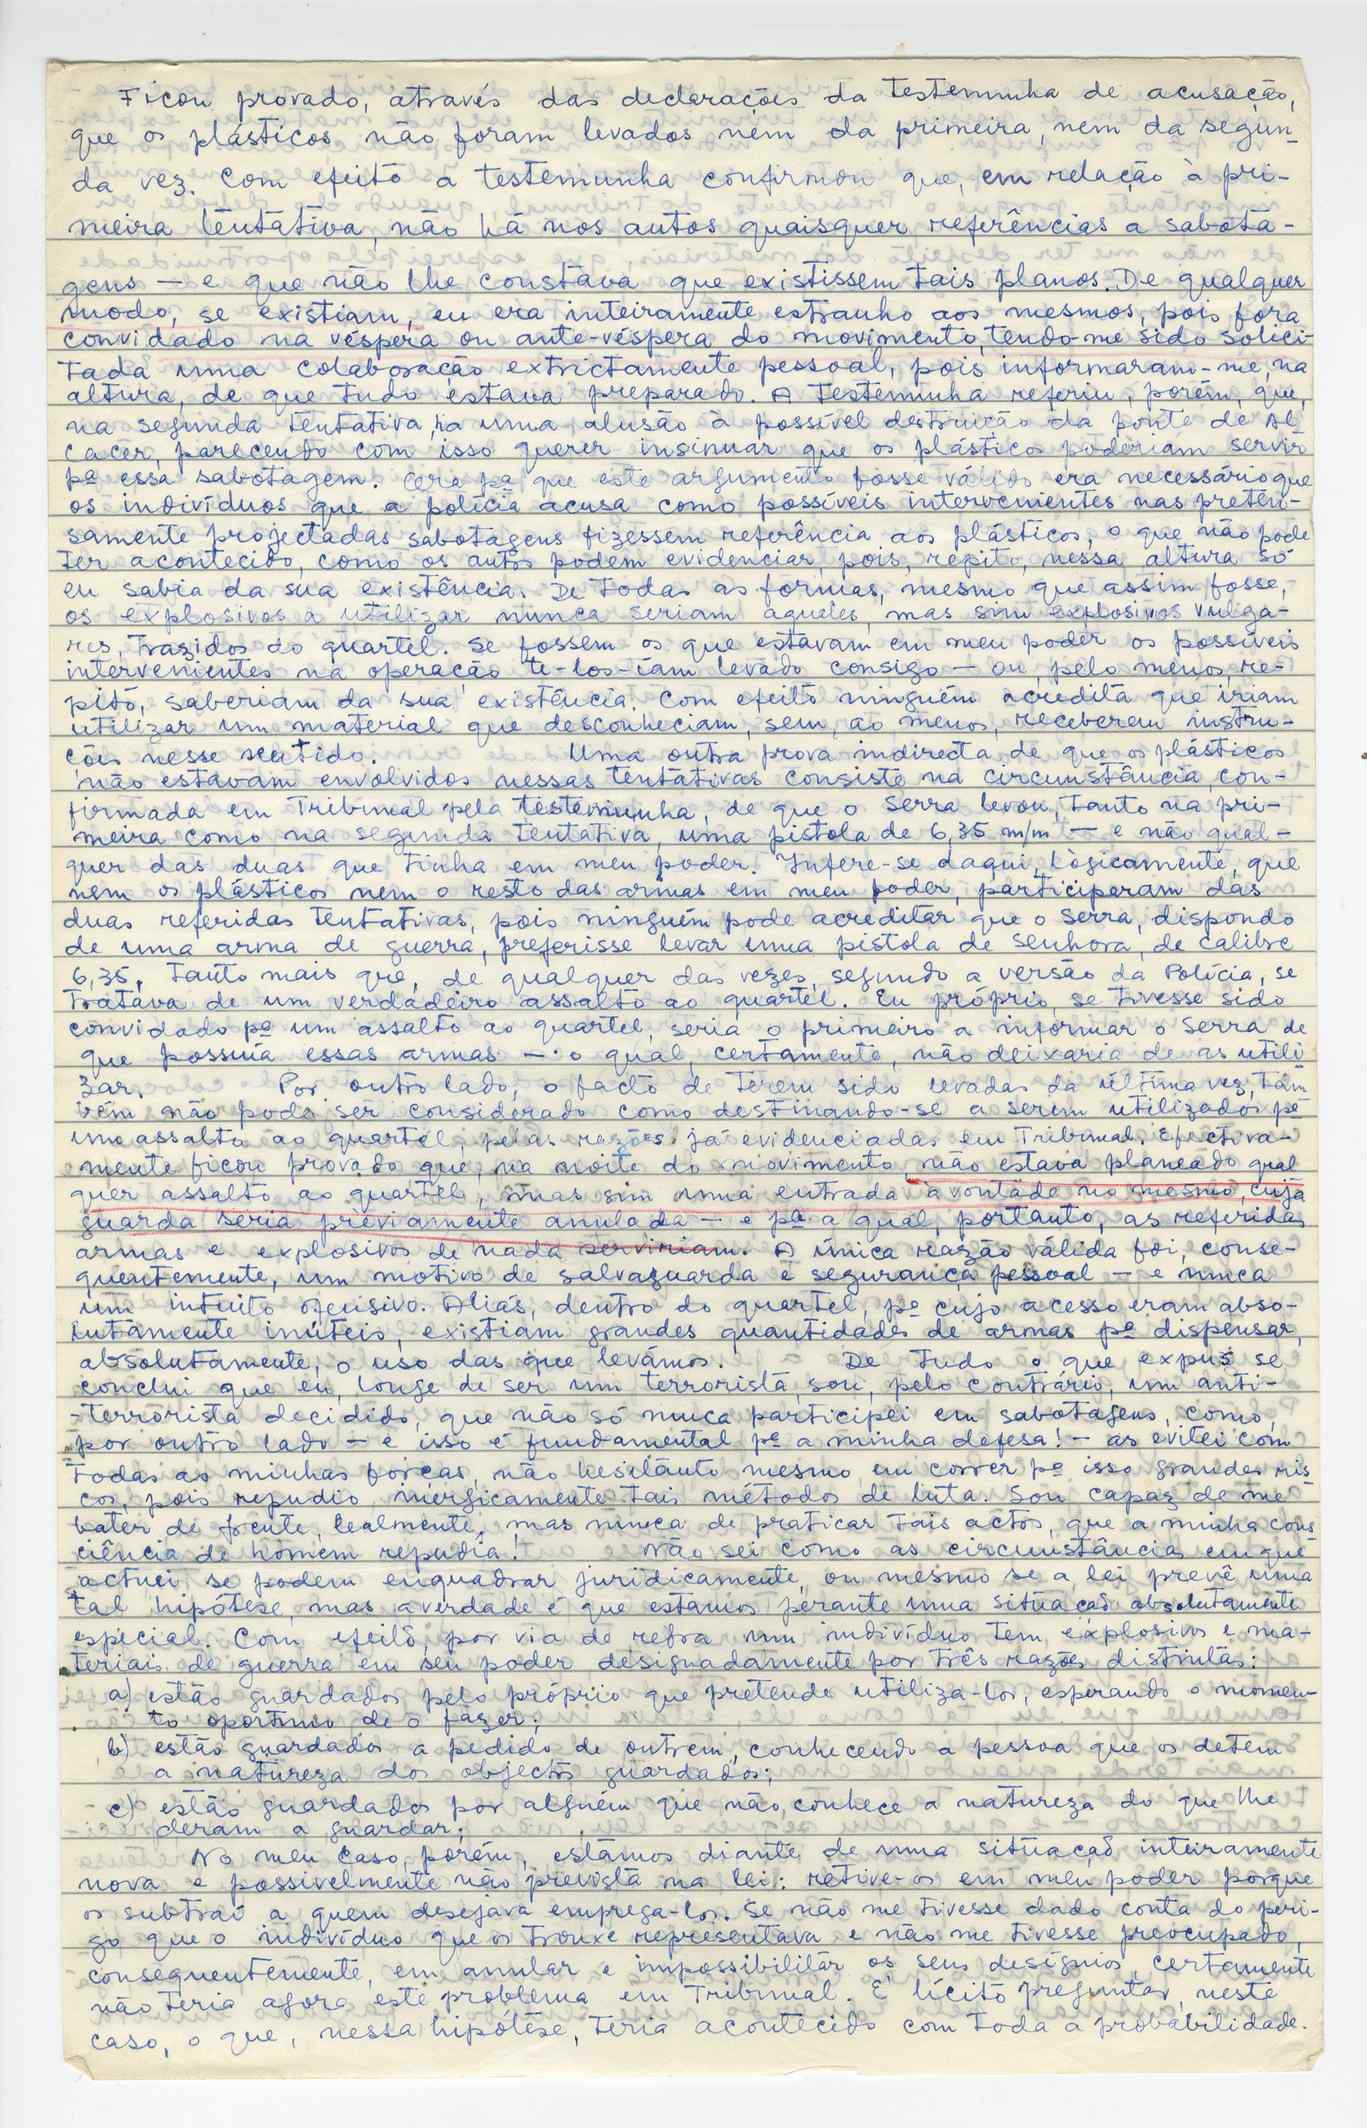 Ficou provado, através das declarações da testemunha de acusação,
que os plásticos não foram levados nem da primeira, nem da segun-
da vez. Com efeito a testemunha confirmou que, em relação à pri-
meira tentativa, não há nos autos quaisquer referências a sabota-
gens — e que não lhe constava que existissem tais planos. De qualquer
modo, se existiam, eu era inteiramente estranho aos mesmos, pois fora
convidado na véspera ou ante-véspera do movimento, tendo-me sido solici-
tada uma colaboração extrictamente pessoal, pois informaram-me, na
altura, de que tudo estava preparado. A testemunha referiu, porém, que,
na segunda tentativa, há uma alusão à possível destruição da ponte de Al
cácer, parecendo com isso querer insinuar que os plásticos poderiam servir
pª essa sabotagem. Ora pª que este argumento fosse válido era necessário que
os indivíduos que a polícia acusa como possíveis intervenientes nas preten-
samente projectadas sabotagens fizessem referência aos plásticos, o que não pode
ter acontecido, como os autos podem evidenciar, pois, repito, nessa altura só
eu sabia da sua existência. De todas as formas, mesmo que assim fosse,
os explosivos a utilizar nunca seriam aqueles, mas sim explosivos vulga-
res, trazidos do quartel. Se fossem os que estavam em meu poder os possíveis
intervenientes na operação te-los-iam levado consigo — ou, pelo menos, re-
pito, saberiam da sua existência. Com efeito ninguém acredita que iriam
utilizar um material que desconheciam, sem, ao menos, receberem instru-
ções nesse sentido. Uma outra prova indirecta de que os plásticos
não estavam envolvidos nessas tentativas consiste na circunstância, con-
firmada em Tribunal pela testemunha, de que o Serra levou, tanto na pri-
meira como na segunda tentativa, uma pistola de 6,35 m/m — e não qual-
quer das duas que tinha em meu poder. Infere-se daqui, lògicamente, que
nem os plásticos nem o resto das armas em meu poder, participaram das
duas referidas tentativas, pois ninguém pode acreditar que o Serra, dispondo
de uma arma de guerra, preferisse levar uma pistola de senhora, de calibre
6,35, tanto mais que, de qualquer das vezes, segundo a versão da Polícia, se
tratava de um verdadeiro assalto ao quartel. Eu próprio, se tivesse sido
convidado pª um assalto ao quartel, seria o primeiro a informar o Serra de
que possuía essas armas — o qual, certamente, não deixaria de as utili
zar. Por outro lado, o facto de terem sido levadas da última vez, tam
bém não pode ser considerado como destinando-se a serem utilizados pª
um assalto ao quartel, pelas razões já evidenciadas em Tribunal. Efectiva-
mente ficou provado que, na noite do movimento, não estava planeado qual
quer assalto ao quartel, mas sim uma entrada à vontade no mesmo, cuja
guarda seria previamente anulada — e pª a qual, portanto, as referidas
armas e explosivos de nada serviriam. A única razão válida foi, conse-
quentemente, um motivo de salvaguarda e segurança pessoal — e nunca
um intuito ofensivo. Aliás, dentro do quartel, pª cujo acesso eram abso-
lutamente inúteis, existiam grandes quantidades de armas pª dispensar,
absolutamente, o uso das que levámos. De tudo o que expus se
conclui que eu, longe de ser um terrorista, sou, pelo contrário, um anti-
-terrorista decidido, que não só nunca participei em sabotagens, como,
por outro lado — e isso é fundamental pª a minha defesa! — as evitei com
todas as minhas forças, não hesitando mesmo em correr pª isso grandes ris
cos, pois repudio enèrgicamente tais métodos de luta. Sou capaz de me
bater de frente, lealmente, mas nunca de praticar tais actos, que a minha cons
ciência de homem repudia! Não sei como as circunstâncias em que
actuei se podem enquadrar juridicamente, ou mesmo se a lei prevê uma
tal hipótese, mas a verdade é que estamos perante uma situação absolutamente
especial. Com efeito, por via de regra um indivíduo tem explosivos e ma-
teriais de guerra em seu poder designadamente por três razões distintas:
a) estão guardados pelo próprio que pretende utiliza-los, esperando o momen-
to oportuno de o fazer;
b) estão guardados a pedido de outrem, conhecendo a pessoa que os detem
a natureza dos objectos guardados;
c) estão guardados por alguém que não conhece a natureza do que lhe
deram a guardar;
No meu caso, porém, estamos diante de uma situação inteiramente
nova e possivelmente não prevista na lei: retive-os em meu poder porque
os subtraí a quem desejava emprega-los. Se não me tivesse dado conta do peri-
go que o indivíduo que os trouxe representava e não me tivesse preocupado,
consequentemente, em anular e impossibilitar os seus desígnios, certamente
não teria agora este problema em Tribunal. É lícito preguntar, neste
caso, o que, nessa hipótese, teria acontecido com toda a probabilidade.